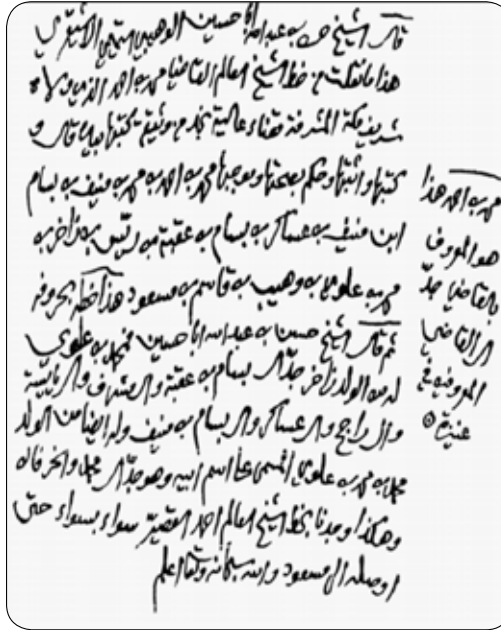 قال الشيخ حسن بن عبدالله أبا حسين الوهيبي التميمي الأشيقري
هذا ما نقلت من خط الشيخ العالم القاضي محمد بن أحمد الذي ولاه
شريف مكة المشرفة قضاء عالية نجد من وثيقة كتبها بيده قال و
كتبها وأثبتها وحكم بصحتها وموجبها محمد بن أحمد بن محمد بن منيف بن بسام
ابن منيف بن عساكر بن بسام بن عقبة بن ريس بن زاخر بن
محمد بن علوي بن وهيب بن قاسم بن مسعود هذا خطه بحروفه
ثم قال الشيخ حسن بن عبدالله أبا حسين فمحمد بن علوي
له من الولد زاخر جد آل بسام بن عقبة وآل مشرف وآل ريس
وآل راجح وآل عساكر وآل بسام بن منيف وله أيضا من الولد
محمد بن محمد بن علوي المسمى على اسم أبيه وهو جد آل محمد والخرفان
وهكذا وجدنا بخط الشيخ العالم أحمد القصير سواء بسواء حتى
أوصله إلى مسعود والله سبحانه وتعالى أعلم
محمد بن أحمد هذا
هو المعروف
بالقاضي جد
آل القاضي
المعروفين في
عنيزة